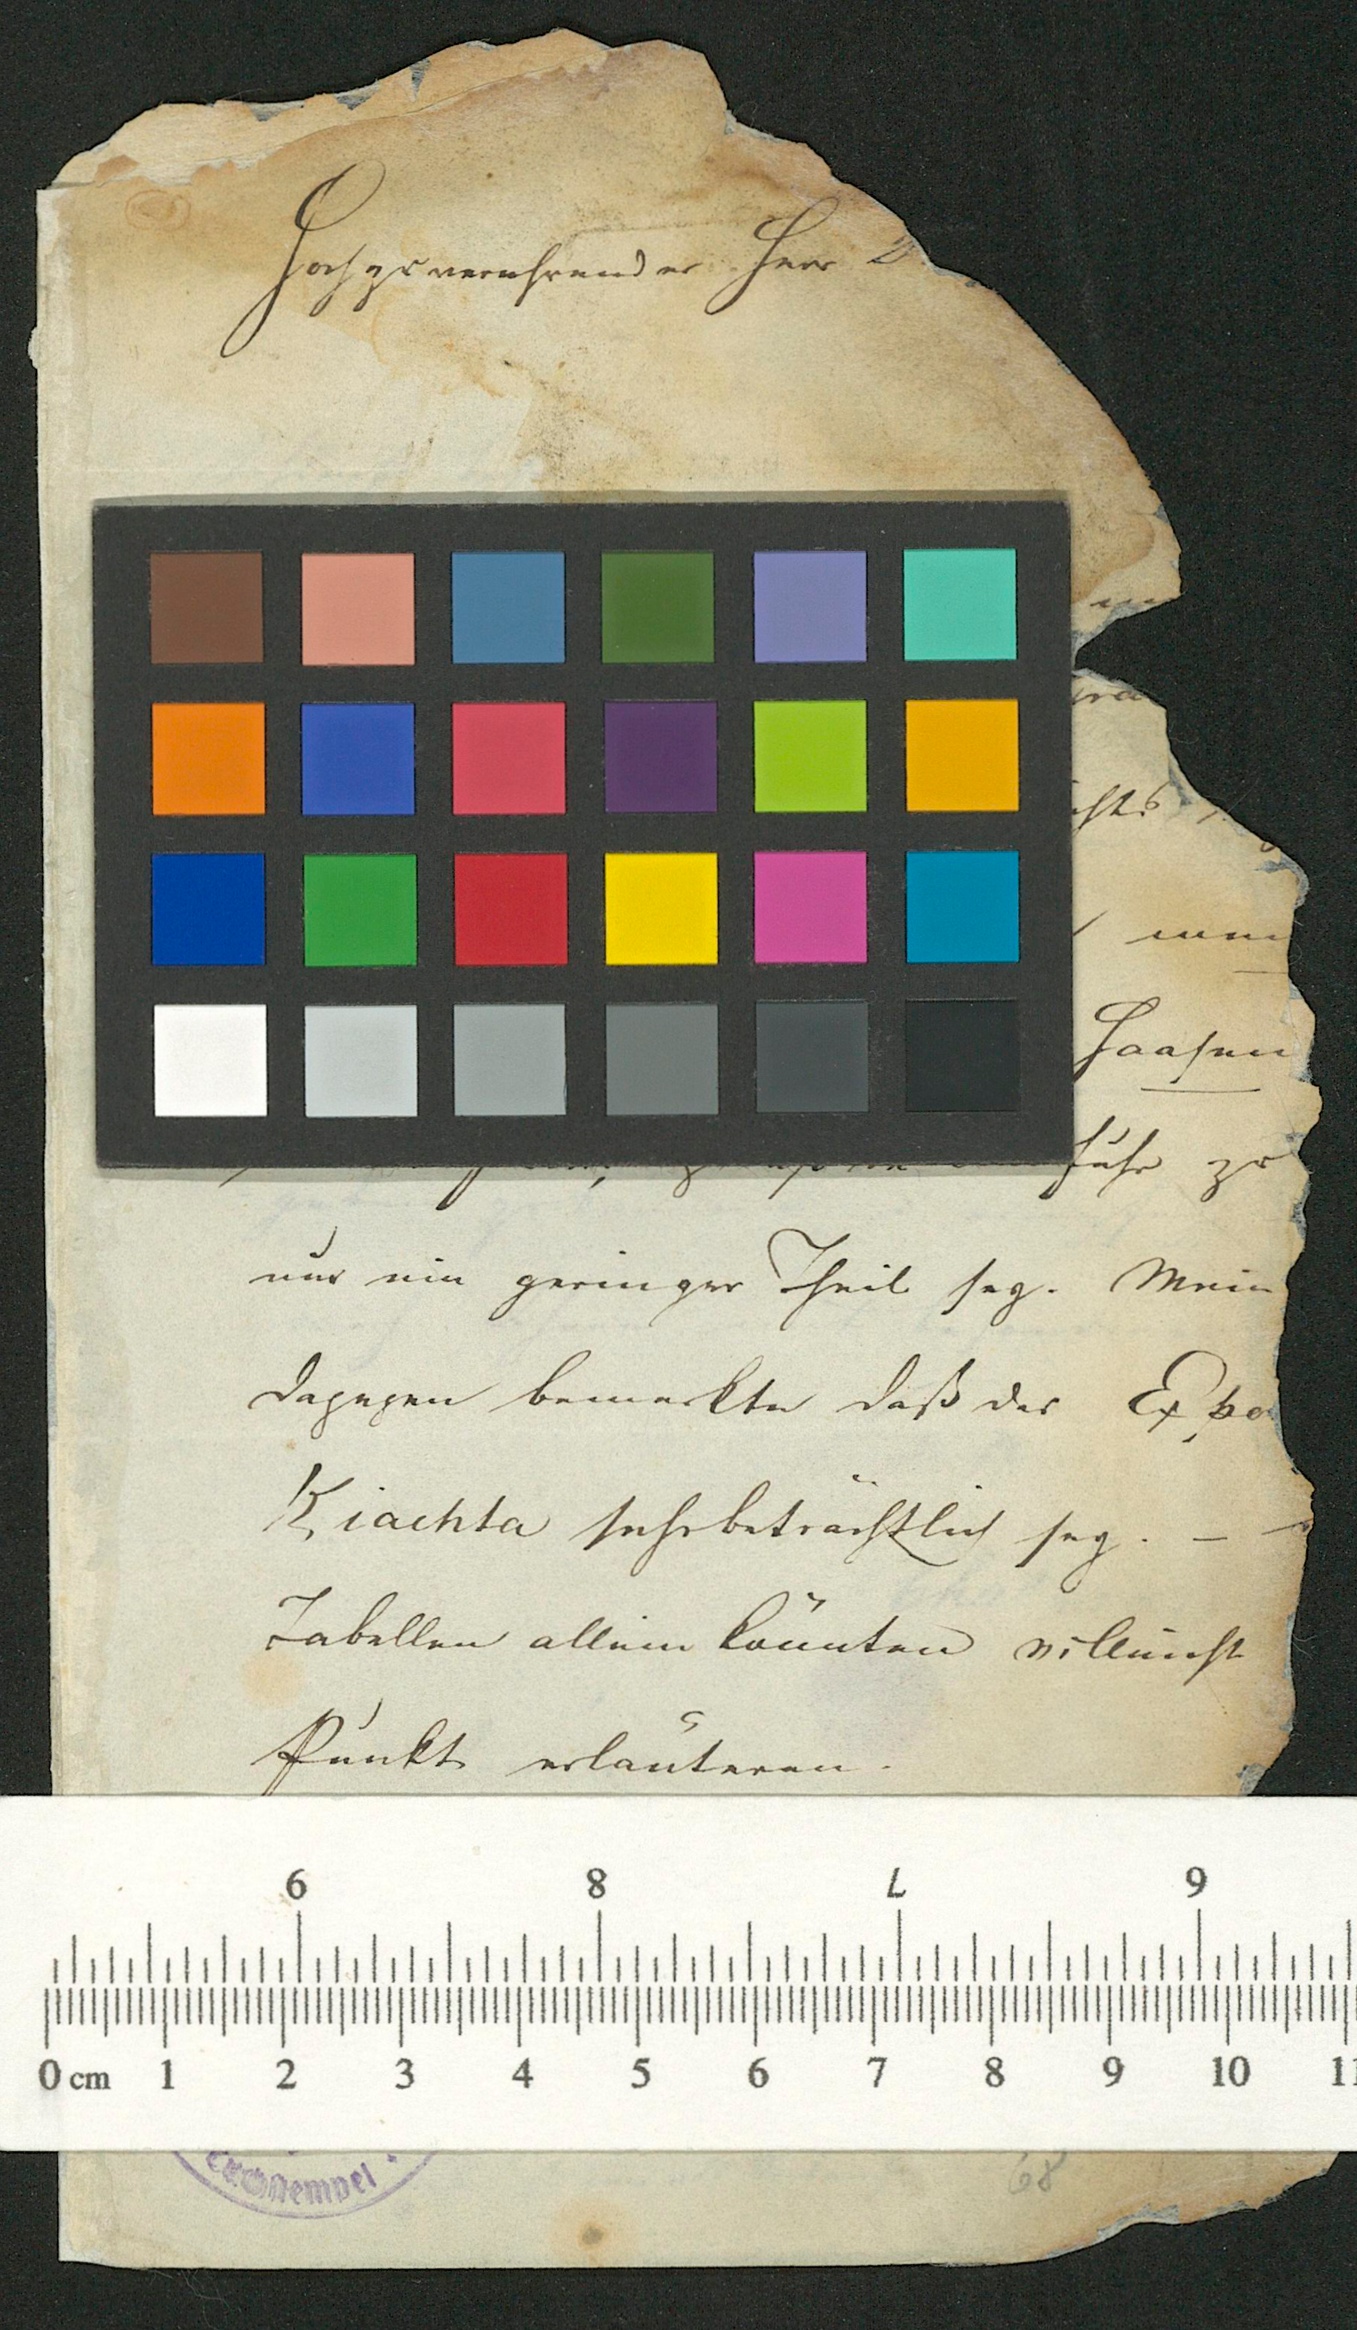 Hochzuverehrender Herr
ichts
Haasen
fuhr
nur ein geringer Theil sey. Mein
dagegen bemerkte daß der Expo
Kiachta sehr beträchtlich sey. –
Tabellen allein könnten villeicht
Punkt erläuteren.
6 8 7 9
0 cm 1 2 3 4 5 6 7 8 9 10 11
tempel
68